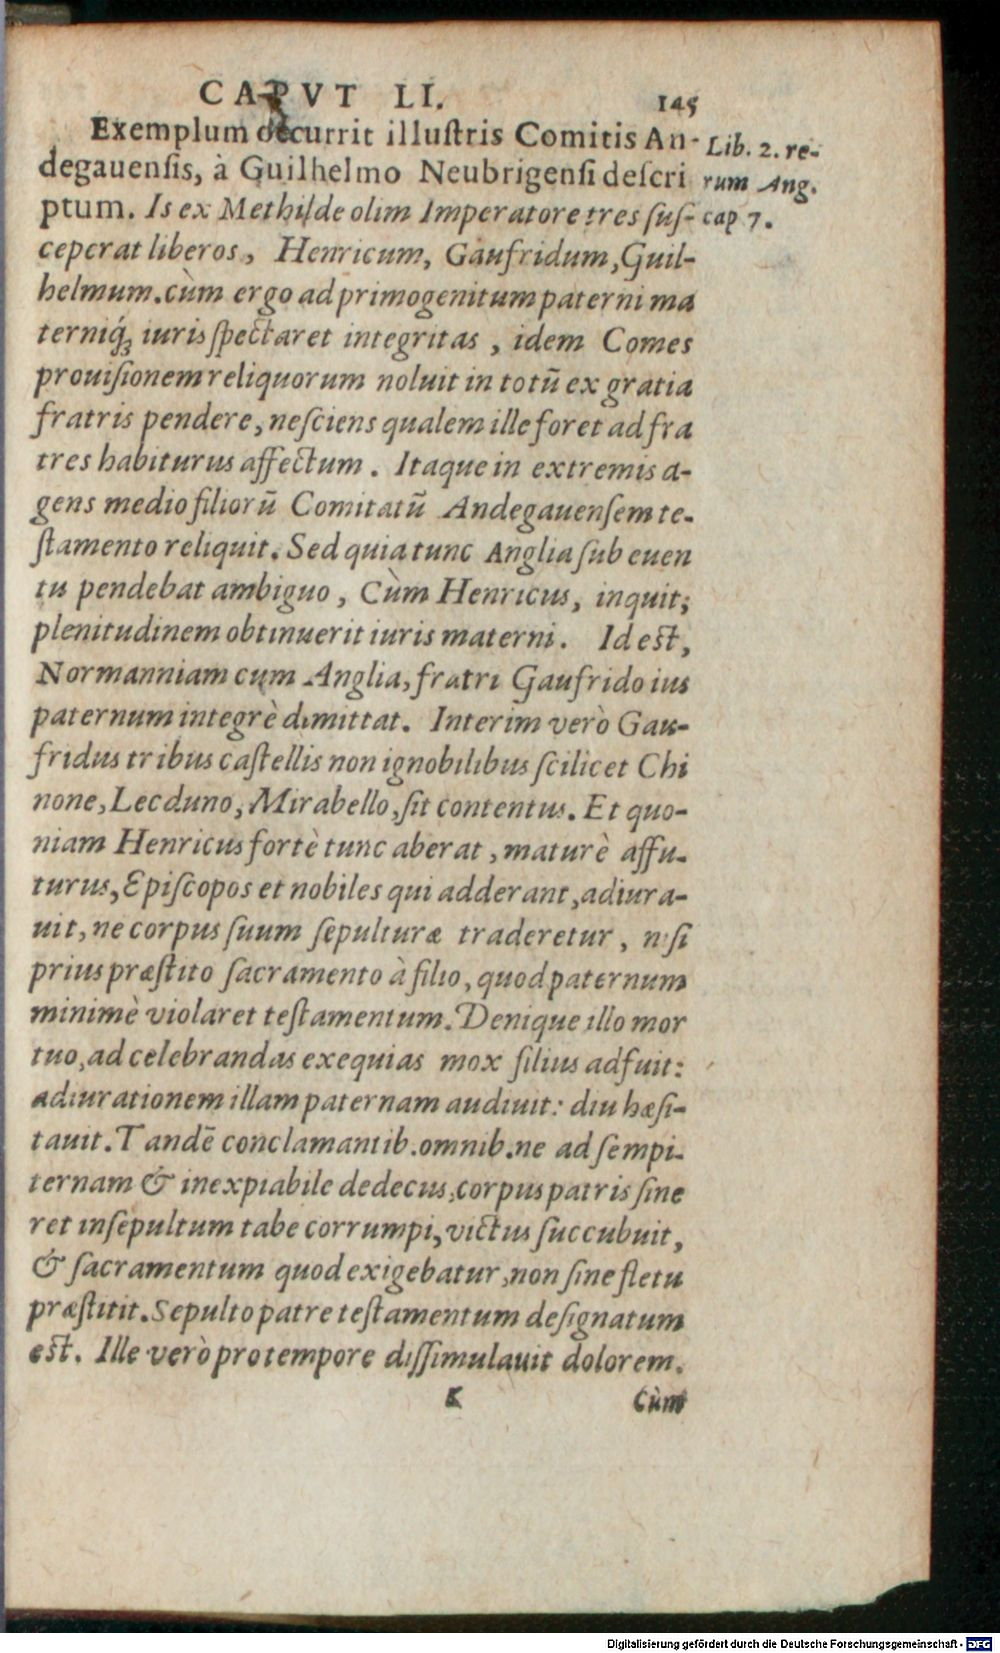 CAPVT LI. 145
Exemplum occurrit illuſtris Comitis An-
degauenſis, à Guilhelmo Neubrigenſi deſcri
ptum. Is ex Methilde olim Imperatore tres ſuſ-
ceperat liberos, Henricum, Gaufridum, Guil-
helmum. cùm ergo ad primogenitum paterni ma
terniq́ꝫ iuris ſpectaret integritas, idem Comes
prouiſionem reliquorum noluit in totū ex gratia
fratris pendere, neſciens qualem ille foret ad fra
tres habiturus affectum. Itaque in extremis a-
gens medio filiorū Comitatū Andegauenſem te-
ſtamento reliquit. Sed quia tunc Anglia ſub euen
tu pendebat ambiguo, Cùm Henricus, inquit;
plenitudinem obtinuerit iuris materni. Id eſt,
Normanniam cum Anglia, fratri Gaufrido ius
paternum integrè dimittat. Interim verò Gau-
fridus tribus caſtellis non ignobilibus ſcilicet Chi
none, Lecduno, Mirabello, ſit contentus. Et quo-
niam Henricus fortè tunc aberat, maturè affu-
turus, Epiſcopos et nobiles qui adderant, adiura-
uit, ne corpus ſuum ſepulturæ traderetur, niſi
prius præſtito ſacramento à filio, quod paternum
minimè violaret teſtamentum. Denique illo mor
tuo, ad celebrandas exequias mox filius adfuit:
adiurationem illam paternam audiuit: diu hæſi-
tauit. Tandē conclamantib. omnib. ne ad ſempi-
ternam & inexpiabile dedecus, corpus patris ſine
ret inſepultum tabe corrumpi, victus ſuccubuit,
& ſacramentum quod exigebatur, non ſine fletu
præſtitit. Sepulto patre teſtamentum deſignatum
eſt. Ille verò pro tempore diſſimulauit dolorem.
K Cùm
Lib. 2. re-
rum Ang.
cap 7.
Digitalisierung gefördert durch die Deutsche Forschungsgemeinschaft - DFG